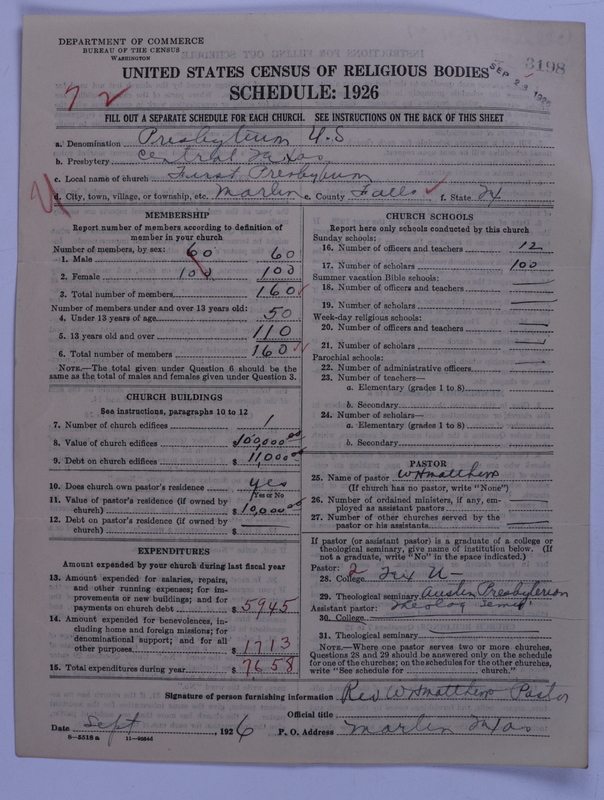 DEPARTMENT OF COMMERCE
BUREAU OF THE CENSUS
WASHINGTON
3198
SEP 28 1926
UNITED STATES CENSUS OF RELIGIOUS BODIES
SCHEDULE: 1926
72
FILL OUT A SEPARATE SCHEDULE FOR EACH CHURCH. SEE INSTRUCTIONS ON THE BACK OF THIS SHEET
a. Denomination Presbyterian U.S
b. Presbytery Central Texas
c. Local name of church First Presbyterian
d. City, town, village, or township, etc. Marlin e. County Falls f. State Tex
MEMBERSHIP
Report number of members according to definition of
member in your church
Number of members, by sex:
1. Male 60 60
2. Female 100 100
3. Total number of members 160
Number of members under and over 13 years old:
4. Under 13 years of age 50
5. 13 years old and over 110
6. Total number of members 160
NOTE.—The total given under Question 6 should be the
same as the total of males and females given under Question 3.
CHURCH BUILDINGS
See instructions, paragraphs 10 to 12
7. Number of church edifices 1
8. Value of church edifices $100,000.00
9. Debt on church edifices $ 11,000.00
10. Does church own pastor's residence yes
Yes or No
11. Value of pastor's residence (if owned by
church) $10,000.00
12. Debt on pastor's residence (if owned by
church) $ —
EXPENDITURES
Amount expended by your church during last fiscal year
13. Amount expended for salaries, repairs,
and other running expenses; for im-
provements or new buildings; and for
payments on church debt $5945
14. Amount expended for benevolences, in-
cluding home and foreign missions; for
denominational support; and for all
other purposes $1713
15. Total expenditures during year $7658
CHURCH SCHOOLS
Report here only schools conducted by this church
Sunday schools:
16. Number of officers and teachers 12
17. Number of scholars 100
Summer vacation Bible schools:
18. Number of officers and teachers —
19. Number of scholars —
Week-day religious schools:
20. Number of officers and teachers —
21. Number of scholars —
Parochial schools:
22. Number of administrative officers
23. Number of teachers—
a. Elementary (grades 1 to 8)
b. Secondary
24. Number of scholars—
a. Elementary (grades 1 to 8)
b. Secondary
PASTOR
25. Name of pastor W H Matthews
(If church has no pastor, write "None")
26. Number of ordained ministers, if any, em-
ployed as assistant pastors —
27. Number of other churches served by the
pastor or his assistants —
If pastor (or assistant pastor) is a graduate of a college or
theological seminary, give name of institution below. (If
not a graduate, write "No" in the space indicated.)
Pastor: 2
28. College Tex U-
29. Theological seminary Austin Presbyterian
Theolog Semy
Assistant pastor:
30. College
31. Theological seminary
NOTE.—Where one pastor serves two or more churches,
Questions 28 and 29 should be answered only on the schedule
for one of the churches; on the schedules for the other churches,
write "See schedule for church."
Signature of person furnishing information Rev W H Matthews Pastor
Official title
Date Sept, 1926 P. O. Address Marlin Texas
8-5518a